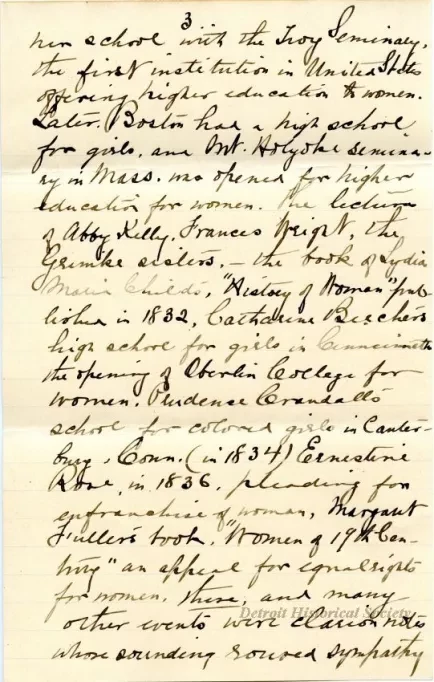 3
her school with the Troy Seminary,
the first institution in United States
offering higher education to women.
Later. Boston had a high school
for girls, and Mt. Holyoke Semina-
ry in Mass. was opened for higher
education for women. The lectures
of Abby Kelly, Frances Wright, the
Grimke sisters, – the book of Lydia
Maria Childs, "History of Woman" pub-
lished in 1832, Catharine Beechers
high school for girls in
the opening of Oberlin College for
women. Prudence Crandall's
school for colored girls in Canter-
bury, Conn. (in 1834) Ernestine
Rose, in 1836, pleading for
enfranchise of woman, Margaret
Fuller's book, "Women of 19th Cen-
tury" an appeal for equal rights
for women. these, and many
other events were clarion notes
whose sounding roused sympathy
Detroit Historical Society